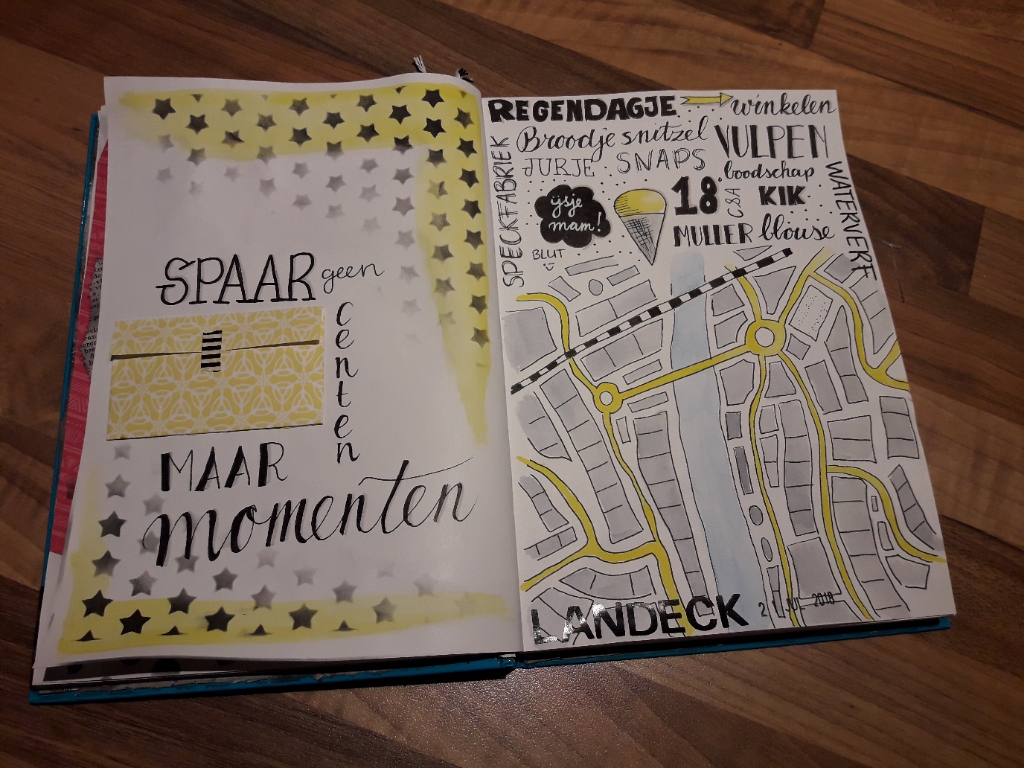 SPAAR geen
centen
MAAR
momenten
REGENDAGJE winkelen
Broodje snitzel VULPEN
JURJE SNAPS boodschap
SPECKFABRIEK
ijsje
mam!
18 C&A KIK
MULLER blouse
WATERVERF
BLUT
LANDECK
2018